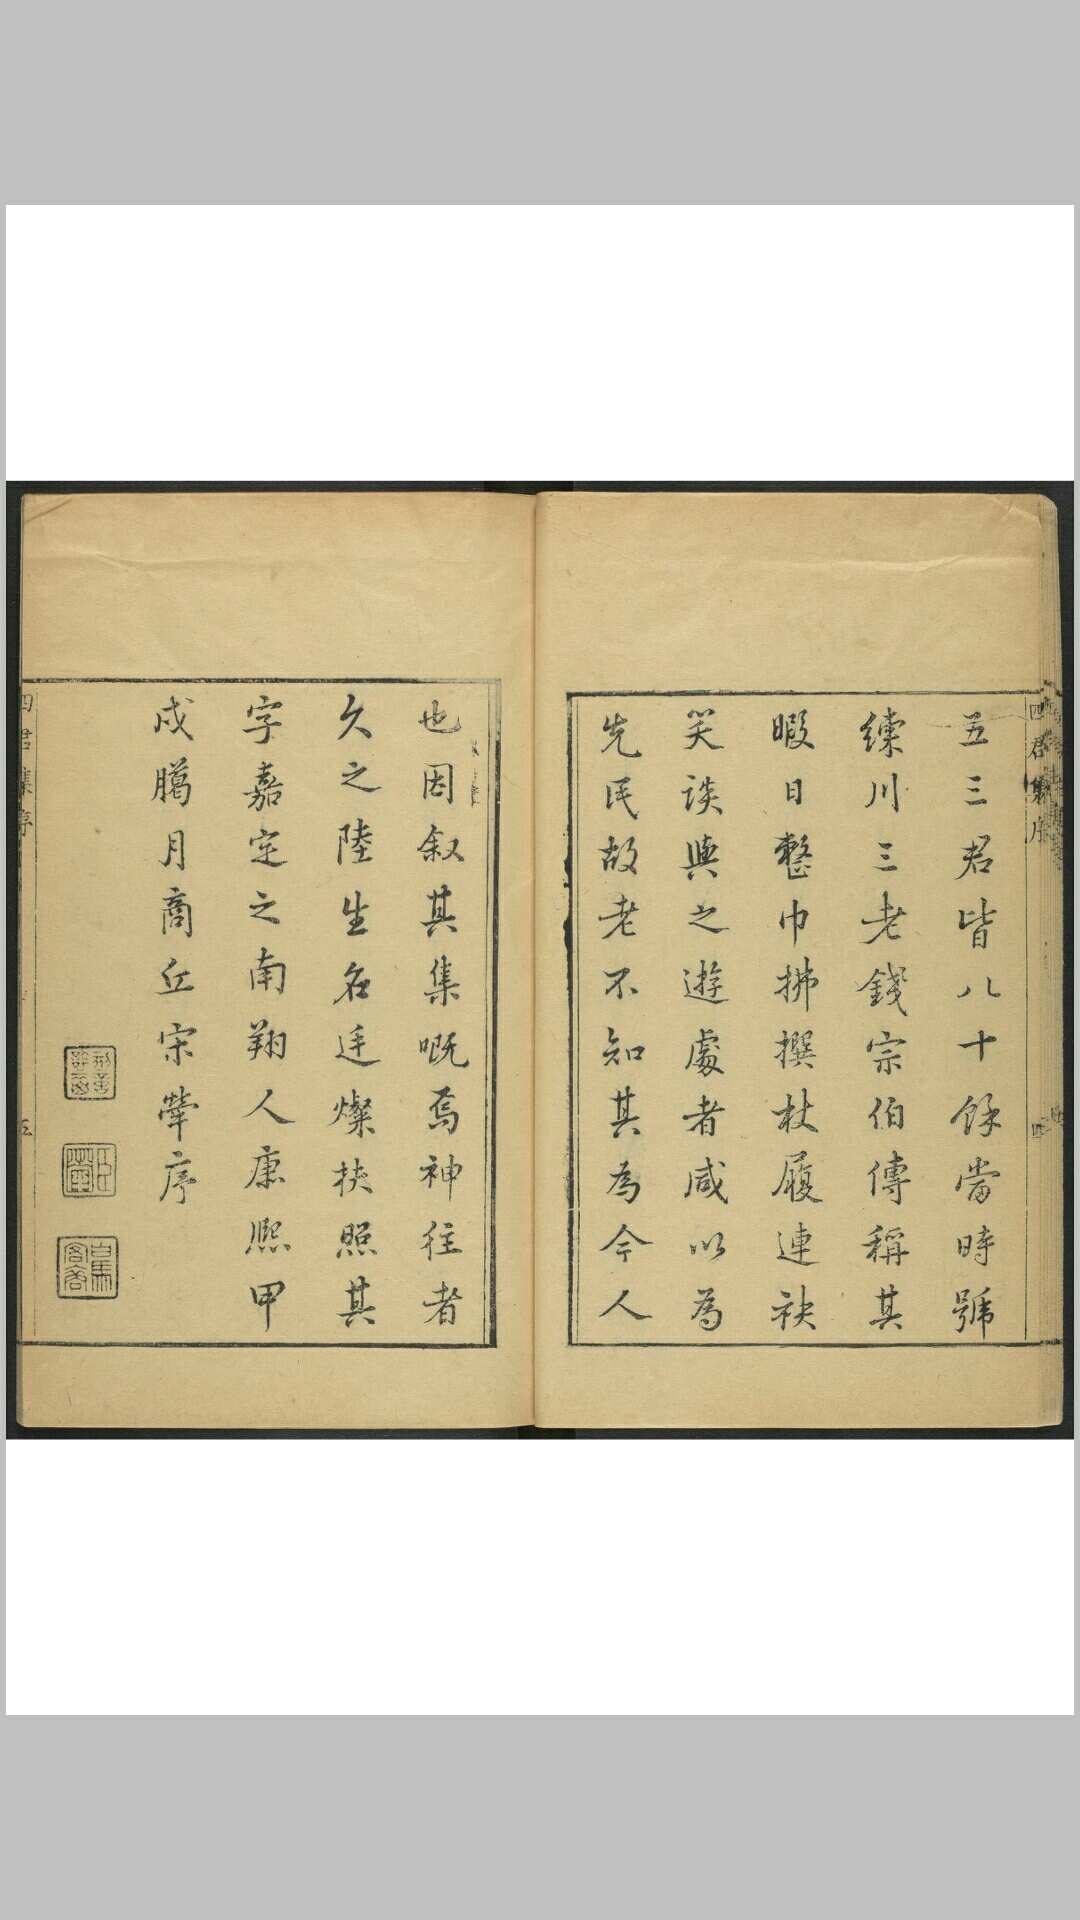 五三君皆八十餘當時號
練川三老錢宗伯傳稱其
暇日整巾拂撰杖履連袂
笑談與之遊處者咸以為
先民故老不知其為今人
也因叙其集嘅焉神往者
久之陸生名廷燦扶照其
字嘉定之南翔人康熙甲
戌臈月商丘宋犖序
四君集序
五
白馬客裔